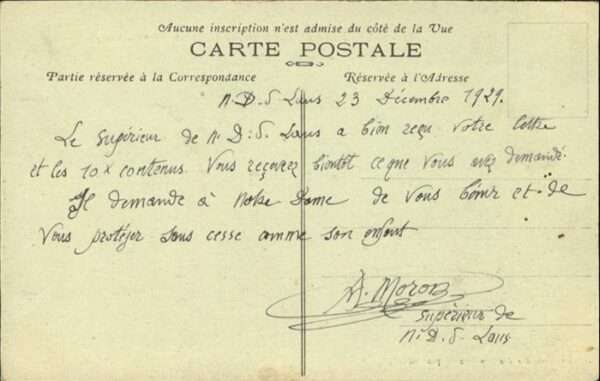 Aucune inscription n'est admise du côté de la Vue
CARTE POSTALE
Partie réservée à la Correspondance
Réservée à l'Adresse
N. D. S. Laus 23 Décembre 1929.
Le Supérieur de N. D. S. Laus a bien reçu votre lettre
et les 10x contenus. Vous recevrez bientôt ce que vous avez demandé.
Il demande à Notre Dame de vous bénir et de
vous protéger sans cesse comme son enfant
Supérieur de
N. D. S. Laus